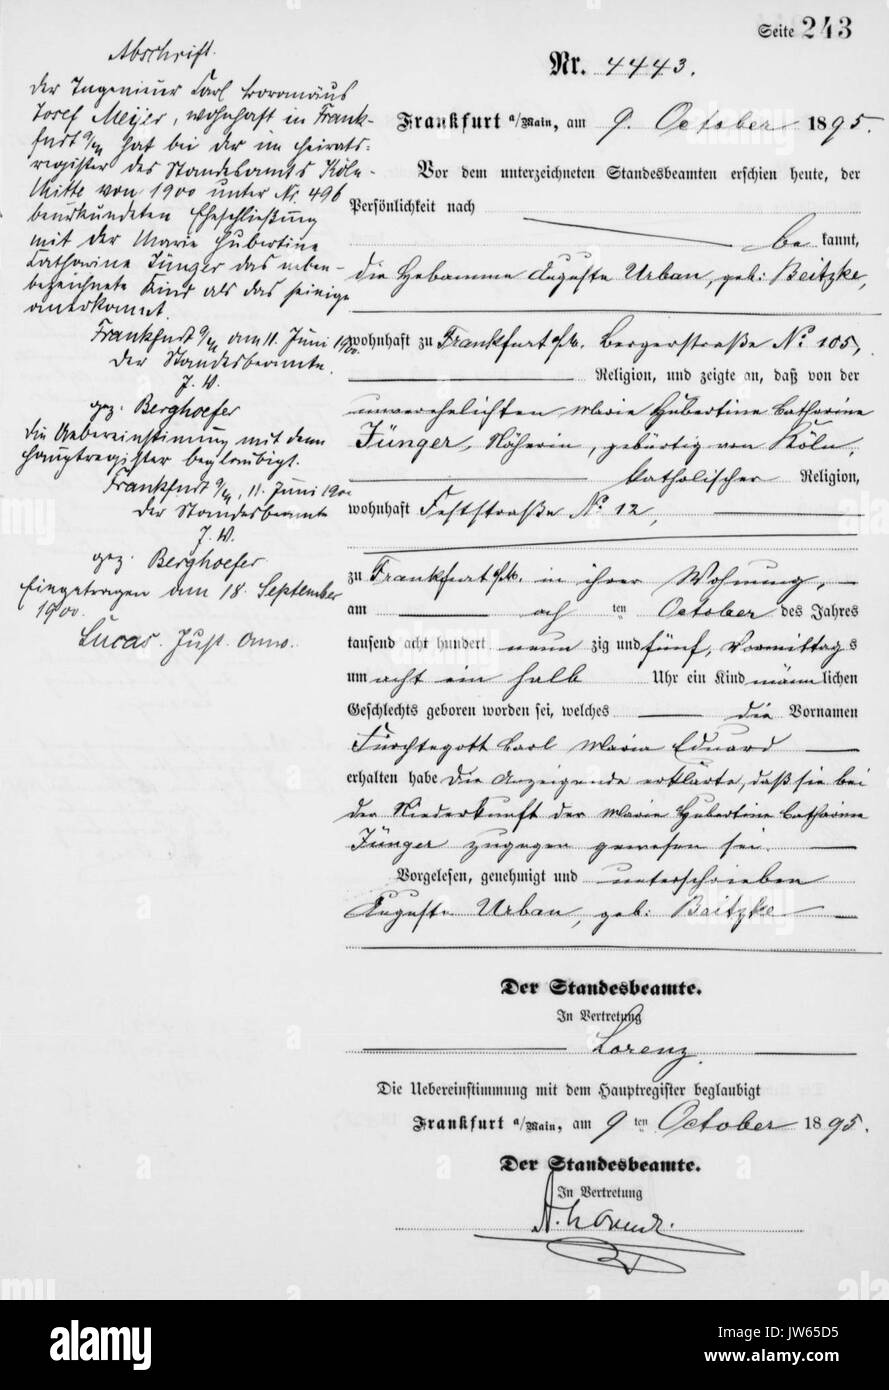 Seite 243
Nr. 4443.
Frankfurt a/Main, am 9. October 1895.
Vor dem unterzeichneten Standesbeamten erschien heute, der
Persönlichkeit nach
be kannt,
die Hebamme Auguste Urban, geb: Beitzke,
wohnhaft zu Frankfurt a/M. Bergerstraße No 105,
Religion, und zeigte an, daß von der
unverehelichten Marie Hubertine Catharine
Jünger, Näherin, gebürtig von Köln,
katholischer Religion,
wohnhaft Feststraße No 12,
zu Frankfurt a/M. in ihrer Wohnung,
am acht ten October des Jahres
tausend acht hundert neun zig und fünf, Vormittags
um acht ein halb Uhr ein Kind männlichen
Geschlechts geboren worden sei, welches die Vornamen
Fürchtegott Carl Maria Eduard
erhalten habe Die Anzeigende erklärte, daß sie bei
der Niederkunft der Marie Hubertine Catharine
Jünger zugegen gewesen sei.
Vorgelesen, genehmigt und unterschrieben
Auguste Urban, geb: Beitzke
Der Standesbeamte.
In Vertretung
Lorenz
Die Uebereinstimmung mit dem Hauptregister beglaubigt
Frankfurt a/Main, am 9 ten October 1895.
Der Standesbeamte.
In Vertretung
Abschrift.
Der Ingenieur Carl Boromäus
Josef Meijer, wohnhaft in Frank-
furt a/M hat bei der im Heirats-
register des Standesamts Köln-
Mitte von 1900 unter Nr. 496
beurkundeten Eheschließung
mit der Marie Hubertine
Catharine Jünger das neben-
bezeichnete Kind als das seinige
anerkannt.
Frankfurt a/M am 11. Juni 1900.
Der Standesbeamte.
J. V.
gez. Berghoefer
Die Uebereinstimmung mit dem
Hauptregister beglaubigt.
Frankfurt a/M, 11. Juni 1900
Der Standesbeamte
J. V.
gez. Berghoefer
Eingetragen am 18. September
1900.
Lucas. Just.
alamy
alamy stock photo
Image ID: JW65D5
www.alamy.com